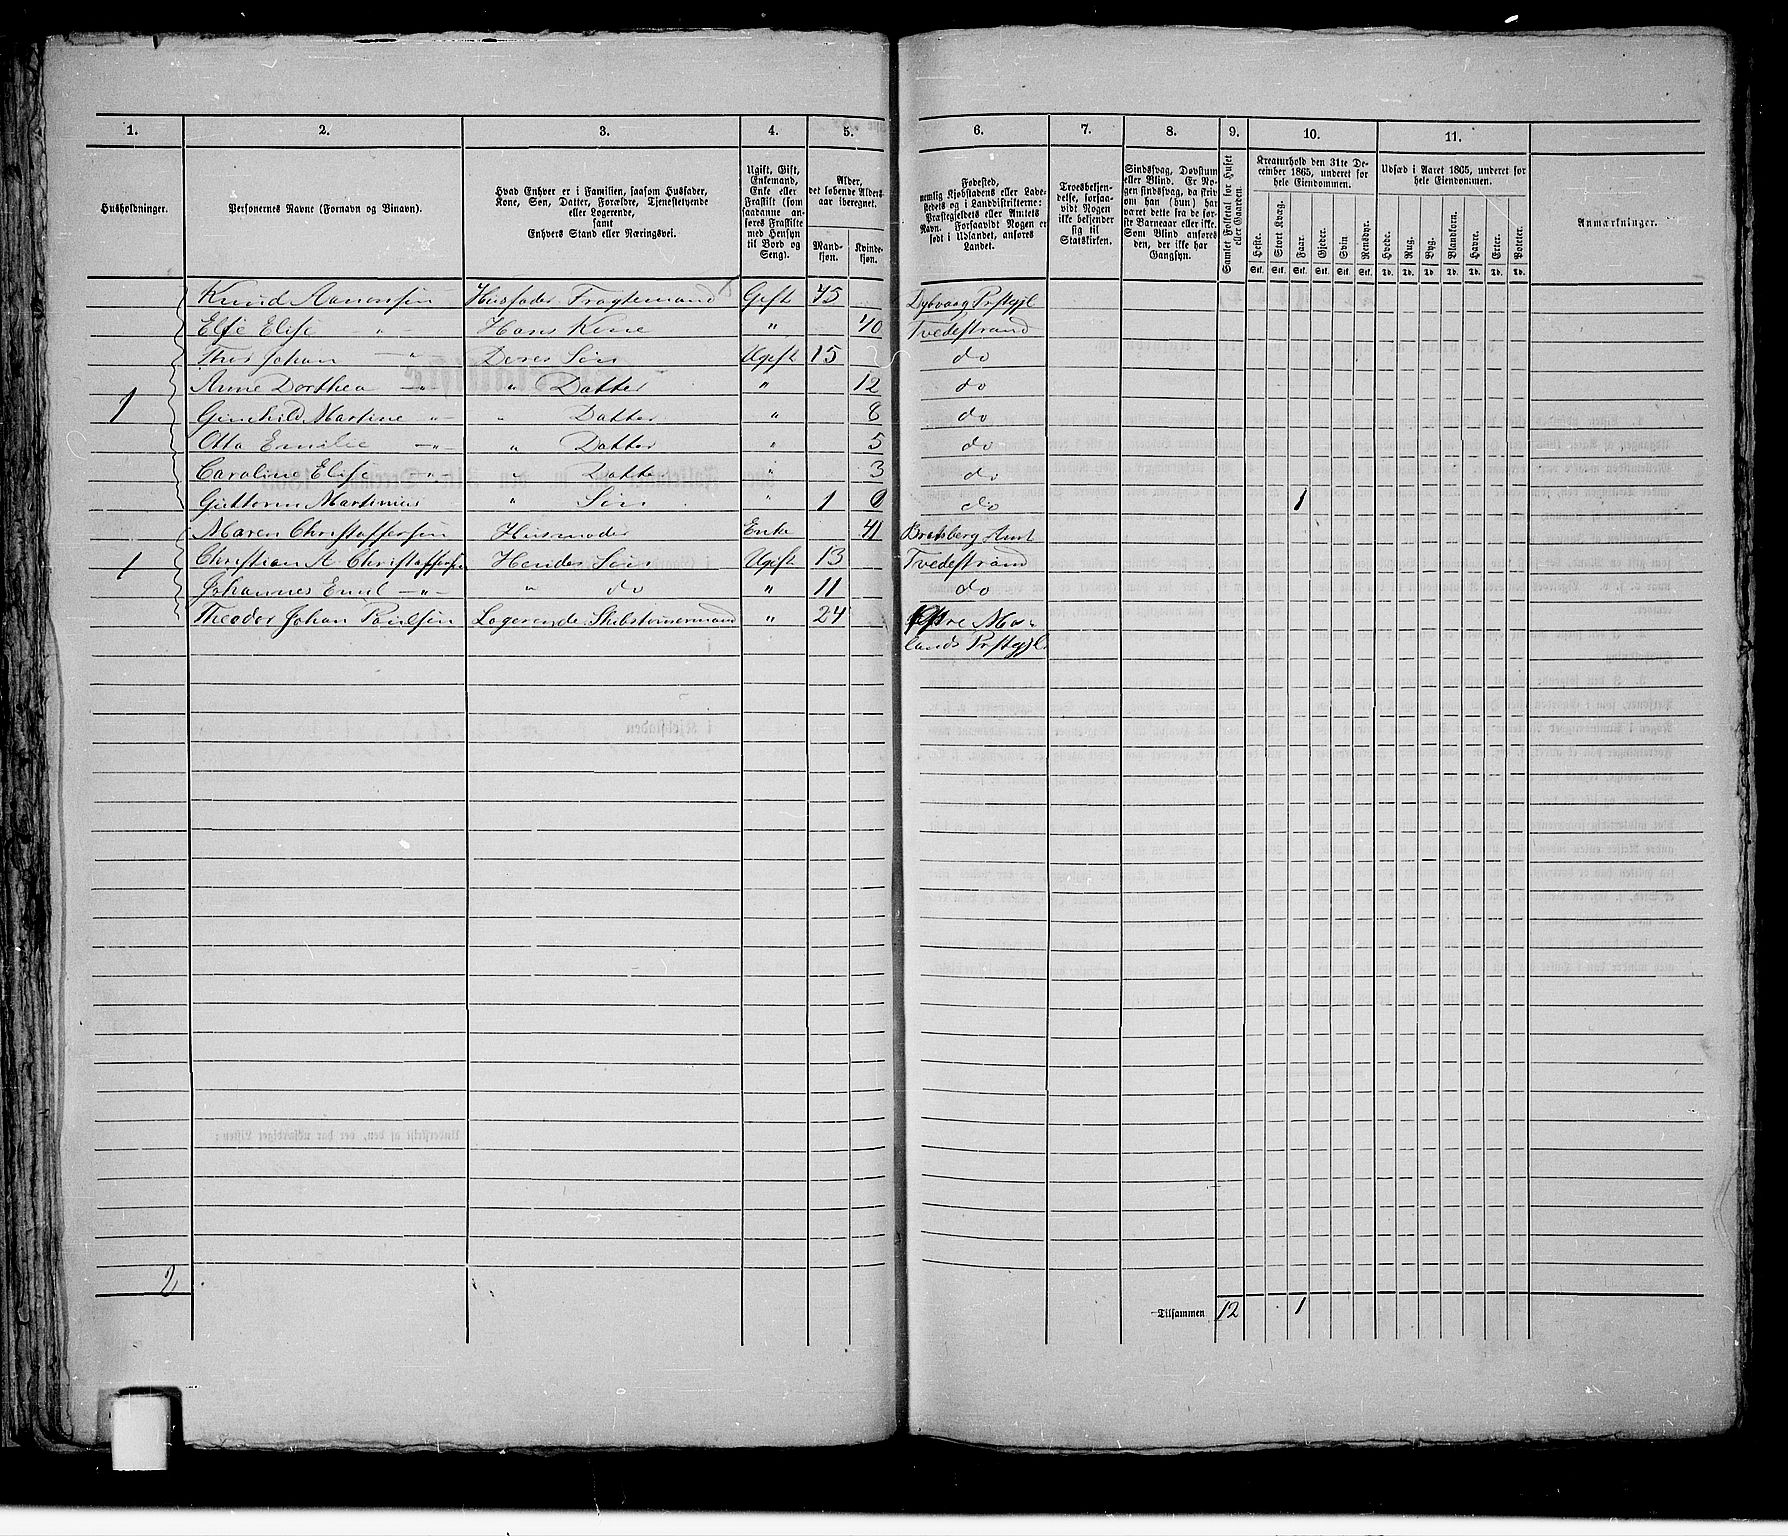 1. 2. 3. 4. 5. 6. 7. 8. 9. 10. 11.
Husholdninger.
Personernes Navne (Fornavn og Binavn).
Hvad Enhver er i Familien, saasom Husfader,
Kone, Søn, Datter, Forældre, Tjenestetyende
eller Logerende,
samt
Enhvers Stand eller Næringsvei.
Ugift, Gift,
Enkemand,
Enke eller
Fraskilt (som
saadanne an-
føres Fraskilte
med Hensyn
til Bord og
Seng).
Alder,
det løbende Alders-
aar iberegnet.
Mand-
kjøn.
Kvinde-
kjøn.
Fødested,
nemlig Kjøbstadens eller Lade-
stedets og i Landdistrikterne:
Præstegjeldets eller Amtets
Navn. Forsaavidt Nogen er
født i Udlandet, anføres
Landet.
Troesbekjen-
delse, forsaa-
vidt Nogen
ikke bekjender
sig til
Statskirken.
Sindssvag, Døvstum
eller Blind. Er No-
gen sindssvag, da skriv
om han (hun) har
været dette fra de før-
ste Barneaar eller ikke.
Som Blind anføres
den, der ikke har
Gangsyn.
Samlet Folketal for Huset
eller Gaarden.
Kreaturhold den 31te De-
cember 1865, underet for
hele Eiendommen.
Heste. Stort Kvæg. Faar. Gjeder. Svin Rensdyr.
Stk. Stk. Stk. Stk. Stk. Stk.
Udsæd i Aaret 1865, underet for
hele Eiendommen.
Hvede. Rug. Byg. Blandkorn. Havre. Erter. Poteter.
Td. Td. Td. Td. Td. Td. Td.
Anmærkninger.
Knud Aanonsen Husfader Fragtemand Gift 45 Dybvaag Prstgjl
Else Elise " Hans Kone " 40 Tvedestrand
Thor Johan " Deres Søn Ugift 15 do
Anne Dorthea " " Datter " 12 do
1 Gunhild Martine " " Datter " 8 do
Otto Emilie " " Datter " 5 do
Caroline Elise " " Datter " 3 do
Guttorm Martinius " Søn " 1 do 1
Maren Christoffersen Husmoder Enke 41 Bratsberg Amt
1 Christian A. Christoffersen Hendes Søn Ugift 13 Tvedestrand
Johannes Emil " " do " 11 do
Theodor Johan Paulsen Logerende Skibstømmermand " 24 Østre Mo-
lands Prstgjl
2
Tilsammen 12 1